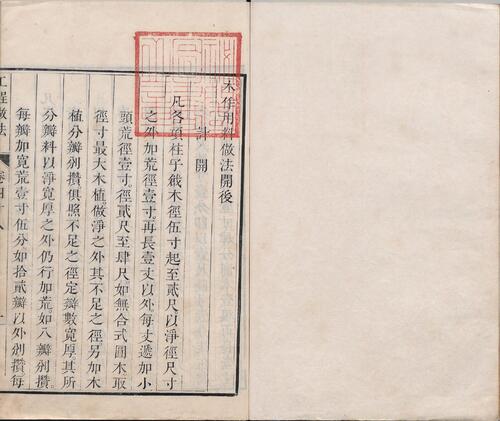 木作用料做法開後
計開
凡各項柱子餓木徑伍寸起至貳尺以淨徑尺寸
之外加荒徑壹寸再長壹丈以外每丈遞加小
頭荒徑壹寸徑貳尺至肆尺如無合式圓木取
徑寸最大木植做淨之外其不足之徑另加木
植分瓣剳攢俱照不足之徑定瓣數寬厚其所
分瓣料以淨寬厚之外仍行加荒如八瓣剳攢
每瓣加寬荒壹寸伍分如拾貳瓣以外剳攢每
工程做法
卷四十八
一